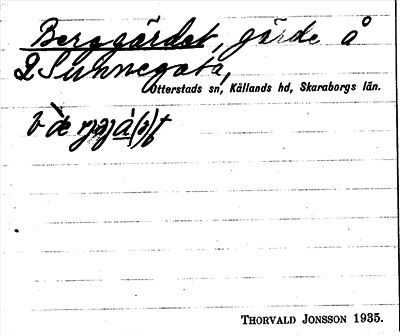 Berggärdet, gärde å
2 Sunnegata,
Otterstads sn, Kållands hd, Skaraborgs län.
THORVALD JONSSON 1935.